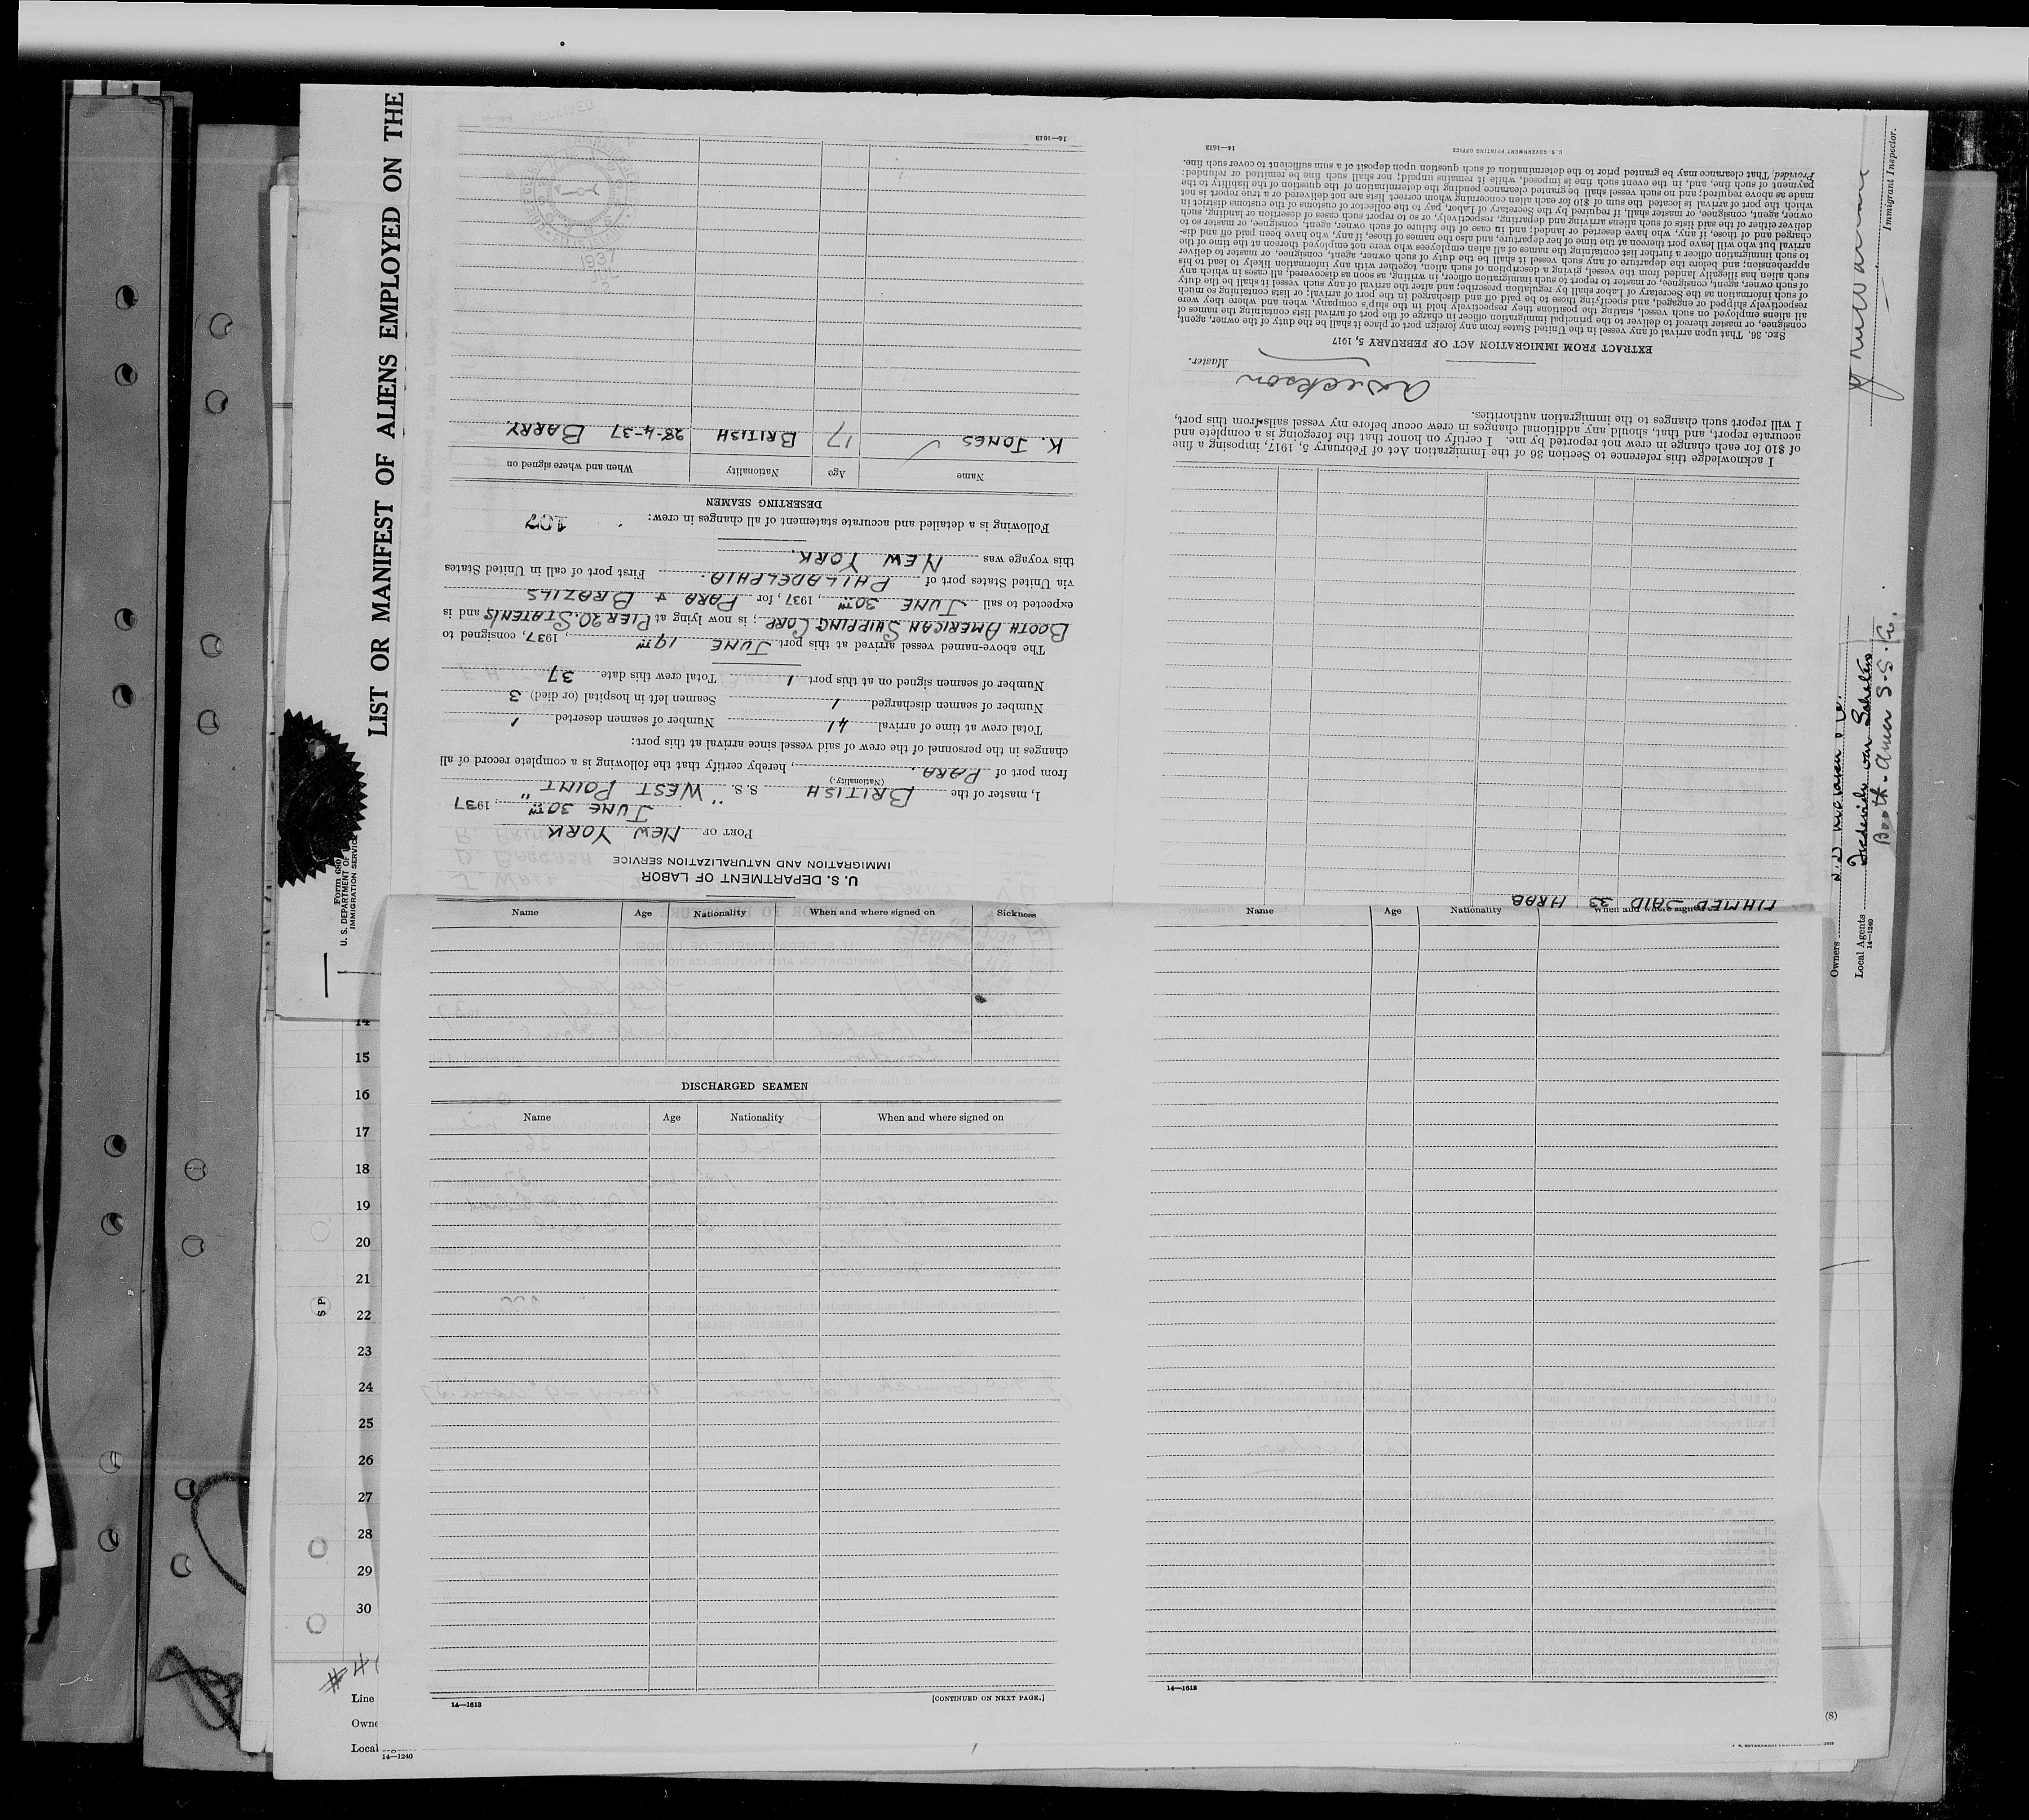 LIST OR MANIFEST OF ALIENS EMPLOYED ON THE
U. S. DEPARTMENT OF
IMMIGRATION SERVICE
U. S. DEPARTMENT OF LABOR
IMMIGRATION AND NATURALIZATION SERVICE
PORT OF NEW YORK
JUNE 30TH, 1937
I, master of the BRITISH S.S. "WEST POINT"
(Nationality.)
from port of PARA, hereby certify that the following is a complete record of all
changes in the personnel of the crew of said vessel since arrival at this port:
Total crew at time of arrival 41 Number of seamen deserted 1
Number of seamen discharged 1 Seamen left in hospital (or died) 3
Number of seamen signed on at this port 1 Total crew this date 37
The above-named vessel arrived at this port JUNE 19TH, 1937, consigned to
BOOTH AMERICAN SHIPPING CORP; is now lying at PIER 20. STATEN IS and is
expected to sail JUNE 30TH, 1937, for PARA & BRAZILS
via United States port of PHILADELPHIA. First port of call in United States
this voyage was NEW YORK.
Following is a detailed and accurate statement of all changes in crew: 107
DESERTING SEAMEN
Name Age Nationality When and where signed on
K. JONES 17 BRITISH 28-4-37 BARRY.
14—1613
1937
JUL
2
AHMED SAID 33 ARAB
I acknowledge this reference to Section 36 of the Immigration Act of February 5, 1917, imposing a fine
of $10 for each change in crew not reported by me. I certify on honor that the foregoing is a complete and
accurate report, and that, should any additional changes in crew occur before my vessel sails from this port,
I will report such changes to the immigration authorities.
Master.
EXTRACT FROM IMMIGRATION ACT OF FEBRUARY 5, 1917
SEC. 36. That upon arrival of any vessel in the United States from any foreign port or place it shall be the duty of the owner, agent,
consignee, or master thereof to deliver to the principal immigration officer in charge of the port of arrival lists containing the names of
all aliens employed on such vessel, stating the positions they respectively hold in the ship's company, when and where they were
respectively shipped or engaged, and specifying those to be paid off and discharged in the port of arrival; or lists containing so much
of such information as the Secretary of Labor shall by regulation prescribe; and after the arrival of any such vessel it shall be the duty
of such owner, agent, consignee, or master to report to such immigration officer, in writing, as soon as discovered, all cases in which any
such alien has illegally landed from the vessel, giving a description of such alien, together with any information likely to lead to his
apprehension; and before the departure of any such vessel it shall be the duty of such owner, agent, consignee, or master to deliver
to such immigration officer a further list containing the names of all alien employees who were not employed thereon at the time of the
arrival but who will leave port thereon at the time of her departure, and also the names of those, if any, who have been paid off and dis-
charged and of those, if any, who have deserted or landed; and in case of the failure of such owner, agent, consignee, or master so to
deliver either of the said lists of such aliens arriving and departing, respectively, or so to report such cases of desertion or landing, such
owner, agent, consignee, or master shall, if required by the Secretary of Labor, pay to the collector of customs of the customs district in
which the port of arrival is located the sum of $10 for each alien concerning whom correct lists are not delivered or a true report is not
made as above required; and no such vessel shall be granted clearance pending the determination of the question of the liability to the
payment of such fine, and, in the event such fine is imposed, while it remains unpaid; nor shall such fine be remitted or refunded:
Provided, That clearance may be granted prior to the determination of such question upon deposit of a sum sufficient to cover such fine.
U. S. GOVERNMENT PRINTING OFFICE 14—1613
Immigrant Inspector.
Owners
Local Agents
Booth-Amer S.S. Co.
14—1240
Name Age Nationality When and where signed on Sickness
DISCHARGED SEAMEN
Name Age Nationality When and where signed on
14—1613 [CONTINUED ON NEXT PAGE.]
Name Age Nationality When and where signed
14—1613
(8)
14
15
16
17
18
19
20
21
22
23
24
25
26
27
28
29
30
S P
Line
Owne
Local
14—1240